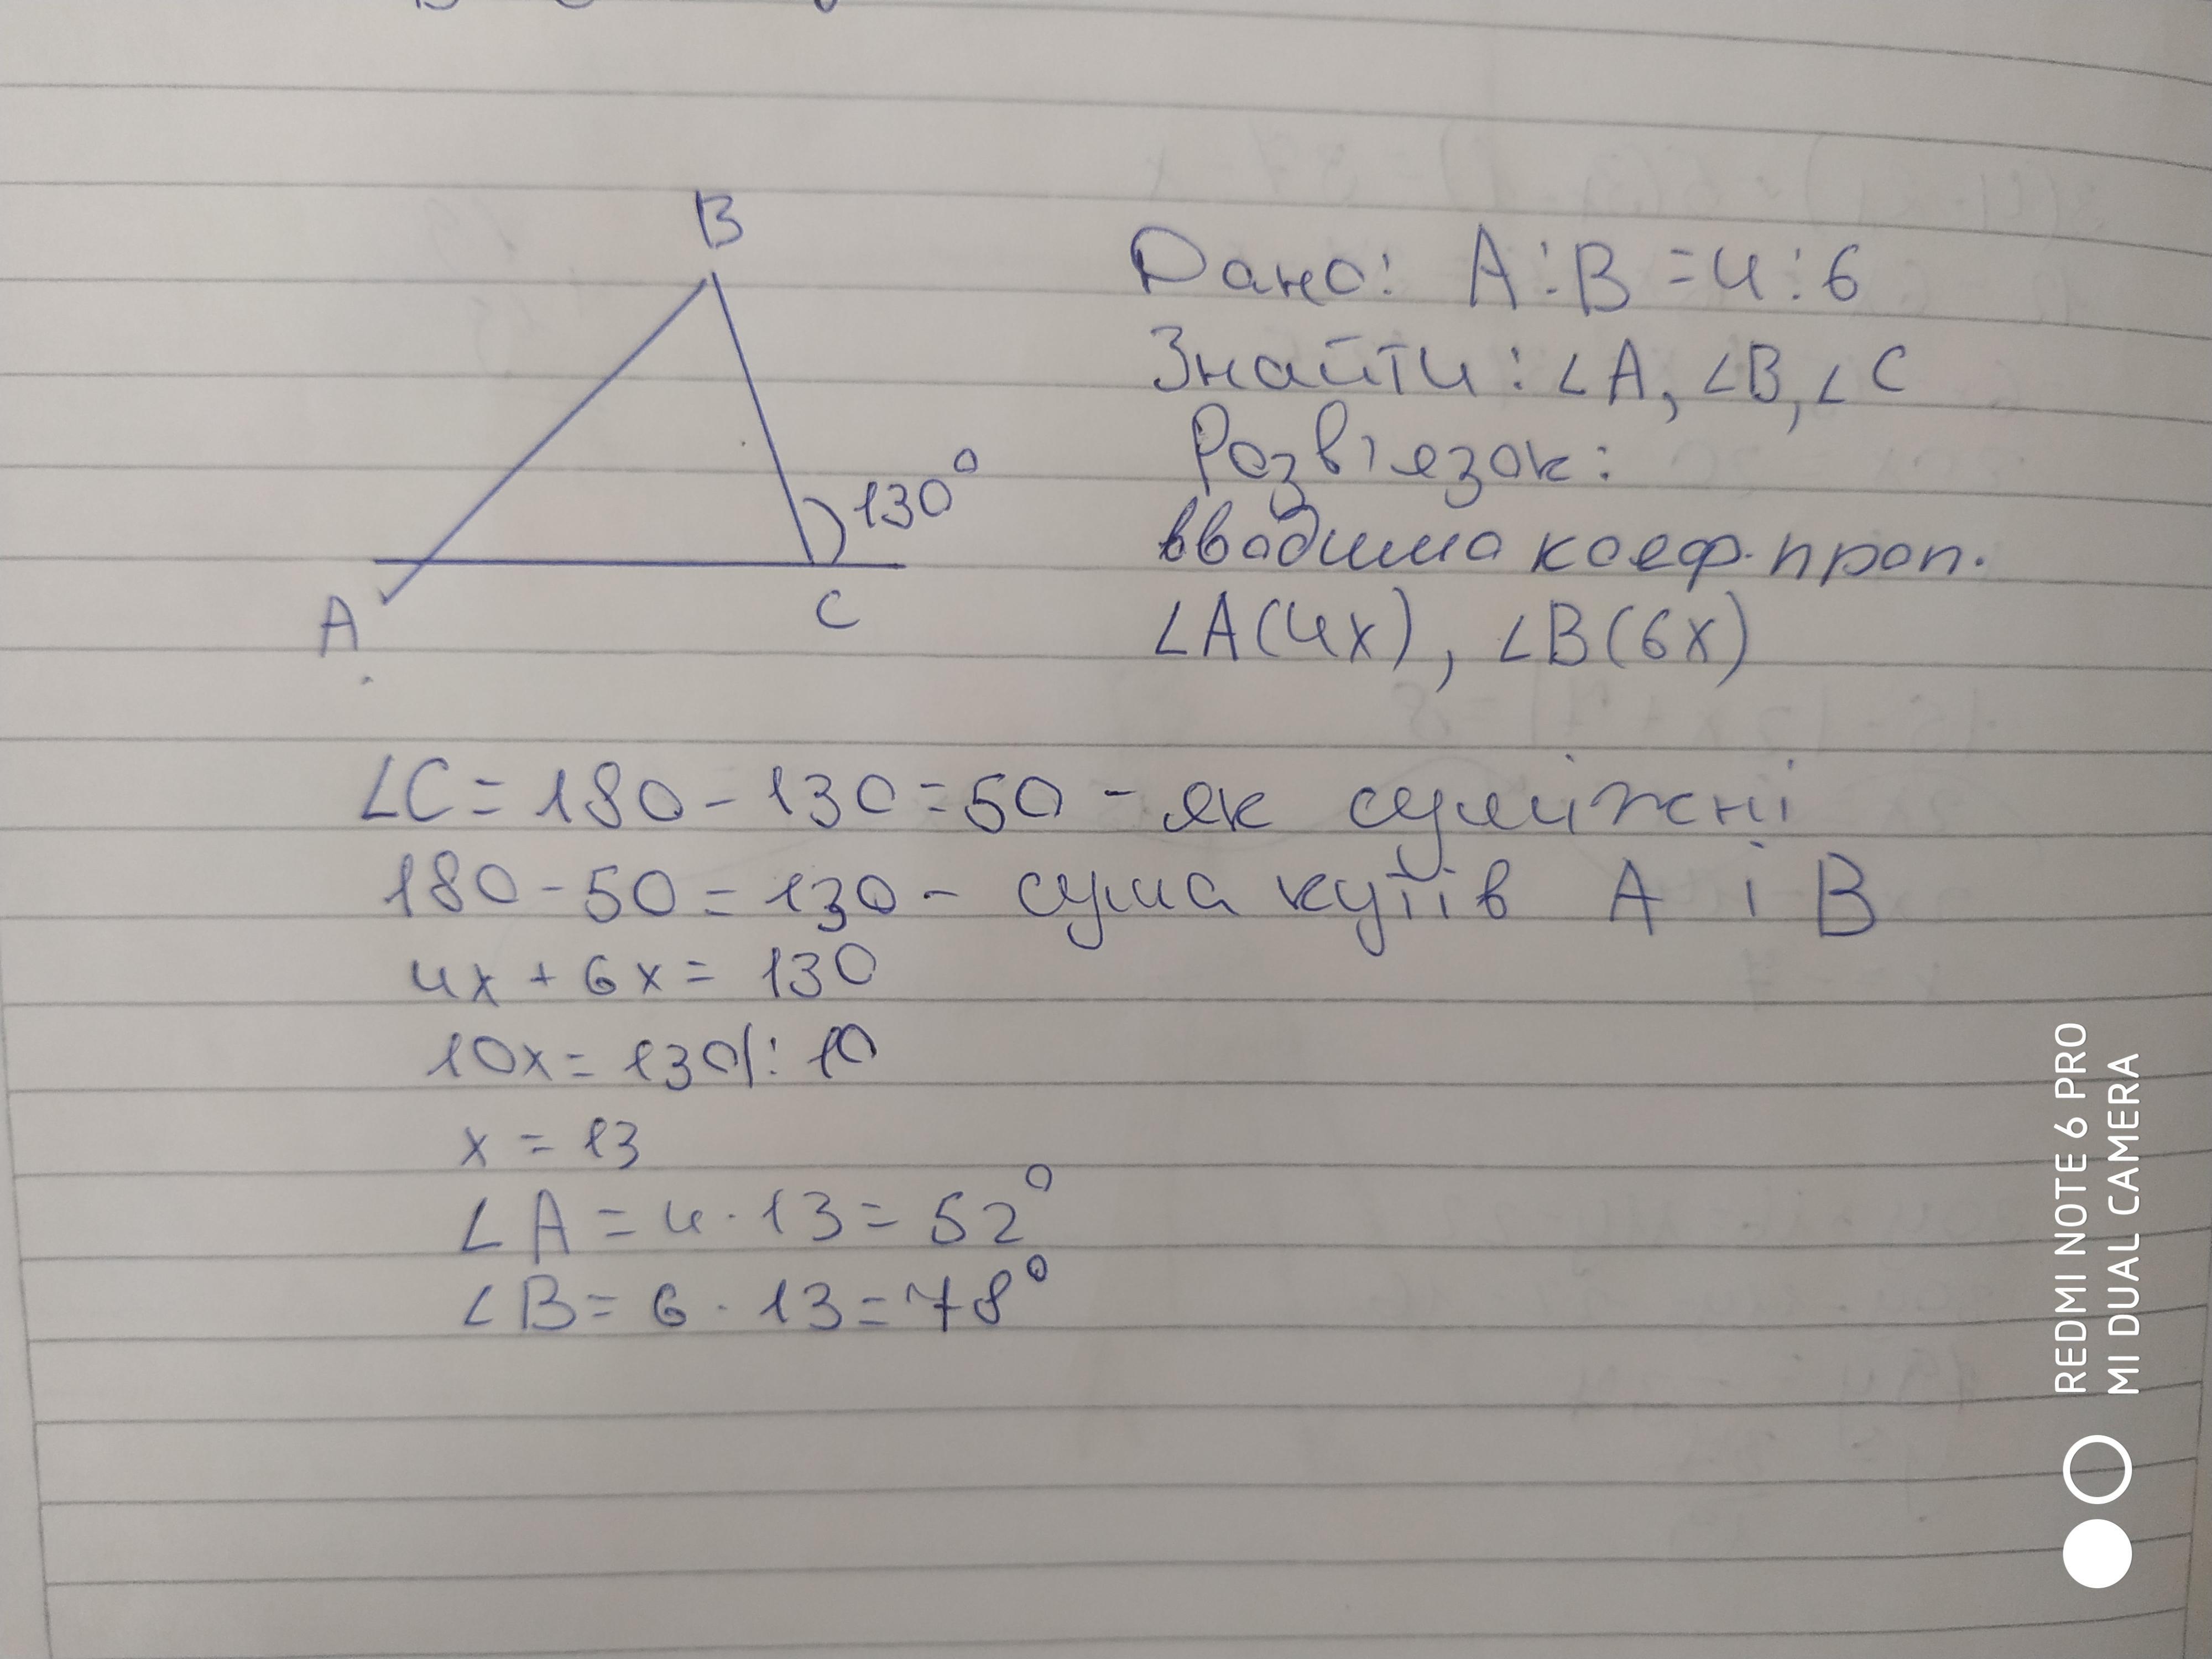 B
130°
A
C
Дано: A:B=4:6
Знайти: ∠A, ∠B, ∠C
Розв'язок:
вводимо коеф. проп.
∠A(4x), ∠B(6x)
∠C = 180 - 130 = 50 - як суміжні
180 - 50 = 130 - сума кутів A і B
4x + 6x = 130
10x = 130 |: 10
x = 13
∠A = 4 · 13 = 52°
∠B = 6 · 13 = 78°
REDMI NOTE 6 PRO
MI DUAL CAMERA